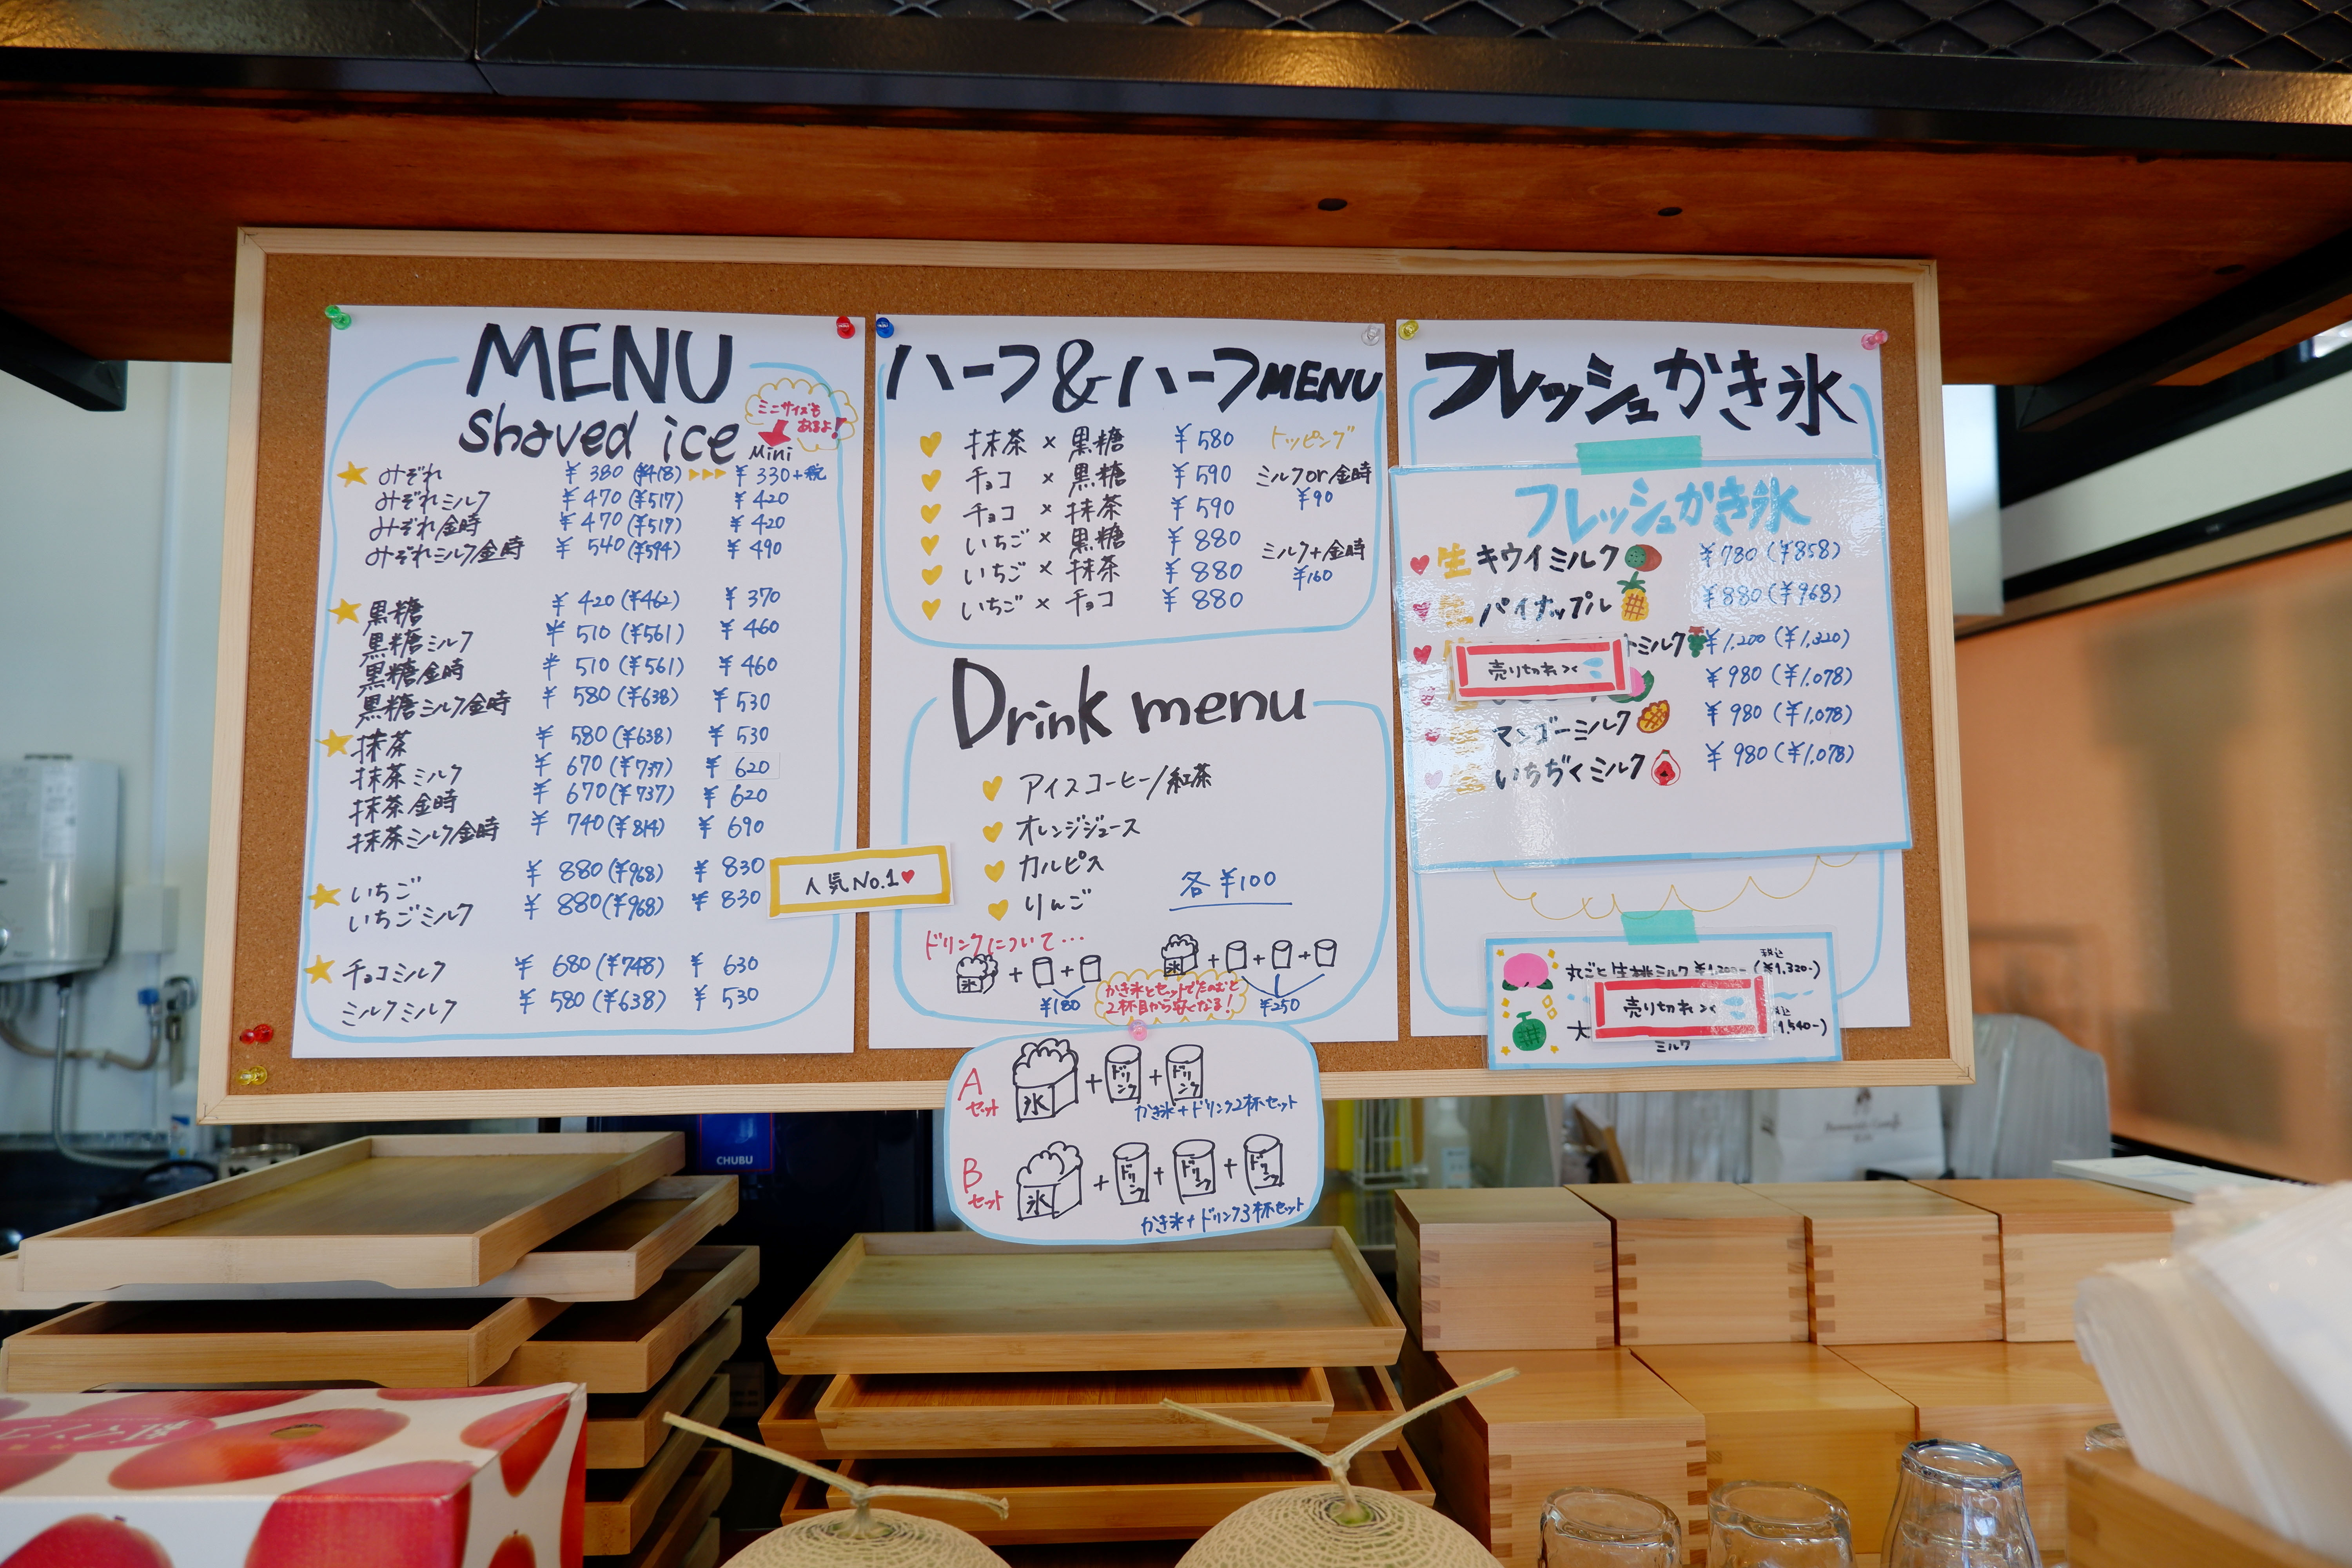 MENU
Shaved ice
ミニサイズも
あるよ!
Mini
みぞれ ¥380 (¥418) ¥330+税
みぞれミルク ¥470 (¥517) ¥420
みぞれ金時 ¥470 (¥517) ¥420
みぞれミルク金時 ¥540 (¥594) ¥490
黒糖 ¥420 (¥462) ¥370
黒糖ミルク ¥510 (¥561) ¥460
黒糖金時 ¥510 (¥561) ¥460
黒糖ミルク金時 ¥580 (¥638) ¥530
抹茶 ¥580 (¥638) ¥530
抹茶ミルク ¥670 (¥737) ¥620
抹茶金時 ¥670 (¥737) ¥620
抹茶ミルク金時 ¥740 (¥814) ¥690
いちご ¥880 (¥968) ¥830
いちごミルク ¥880 (¥968) ¥830
人気No.1
チョコミルク ¥680 (¥748) ¥630
ミルクミルク ¥580 (¥638) ¥530
ハーフ&ハーフMENU
抹茶×黒糖 ¥580
チョコ×黒糖 ¥590
チョコ×抹茶 ¥590
いちご×黒糖 ¥880
いちご×抹茶 ¥880
いちご×チョコ ¥880
トッピング
ミルクor金時
¥90
ミルク+金時
¥160
Drink menu
アイスコーヒー/紅茶
オレンジジュース
カルピス
りんご
各¥100
ドリンクについて…
氷 + +
¥180
氷 + + +
¥250
かき氷とセットでたのむと
2杯目から安くなる!
A セット
氷 + ドリンク + ドリンク
かき氷+ドリンク2杯セット
B セット
氷 + ドリンク + ドリンク + ドリンク
かき氷+ドリンク3杯セット
フレッシュかき氷
フレッシュかき氷
生キウイミルク ¥780 (¥858)
生パイナップル ¥880 (¥968)
トミルク ¥1,200 (¥1,320)
売り切れ
¥980 (¥1,078)
マンゴーミルク ¥980 (¥1,078)
いちぢくミルク ¥980 (¥1,078)
税込
丸ごと生桃ミルク ¥1,200- (¥1,320-)
売り切れ
大
1,540-)
ミルク
CHUBU